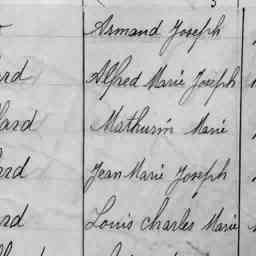 Armand Joseph
ard Alfred Marie Joseph
lard Mathurin Marie
ard Jean Marie Joseph
ard Louis Charles Marie